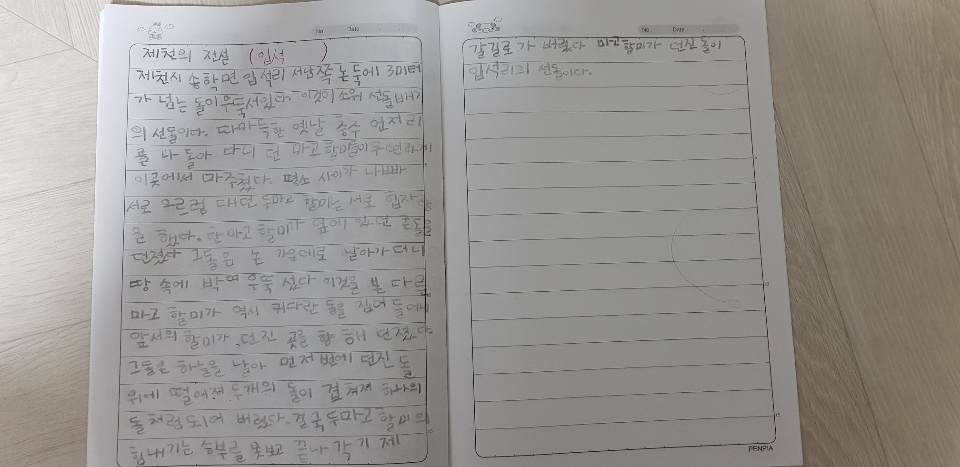 No. Date
제천의 전설 (입석)
제천시 송학면 입석리 서남쪽 논둑에 3미터
가 넘는 돌이 우뚝서있다. 이것이 소위 선돌배기
의 선돌이다. 까마득한 옛날 충주 언저리
를 나 돌아 다니 던 마고 할미들이 우연하게
이곳에서 마주쳤다. 평소 사이가 나빠
서로 그르렁 대던 두마고 할미는 서로 힘자랑
을 했다. 한 마고 할미가 옆에 있던 큰돌을
던졌다 그돌은 논 가운데로 날아가 더니
땅 속에 박여 우뚝 섰다 이것을 본 다른
마고 할미가 역시 커다란 돌을 집어 들어
앞서의 할미가 던진 곳을 향 해 던졌다
그돌은 하늘을 날아 먼저 번에 던진 돌
위에 떨어져 두개의 돌이 겹쳐져 하나의
돌처럼 되어 버렸다. 결국 두마고 할미의
힘내기는 승부를 못보고 끝나 각기 제
No. Date
갈길로가 버렸다 마고할미가 던진 돌이
입석리의 선돌이다.
PENPIA